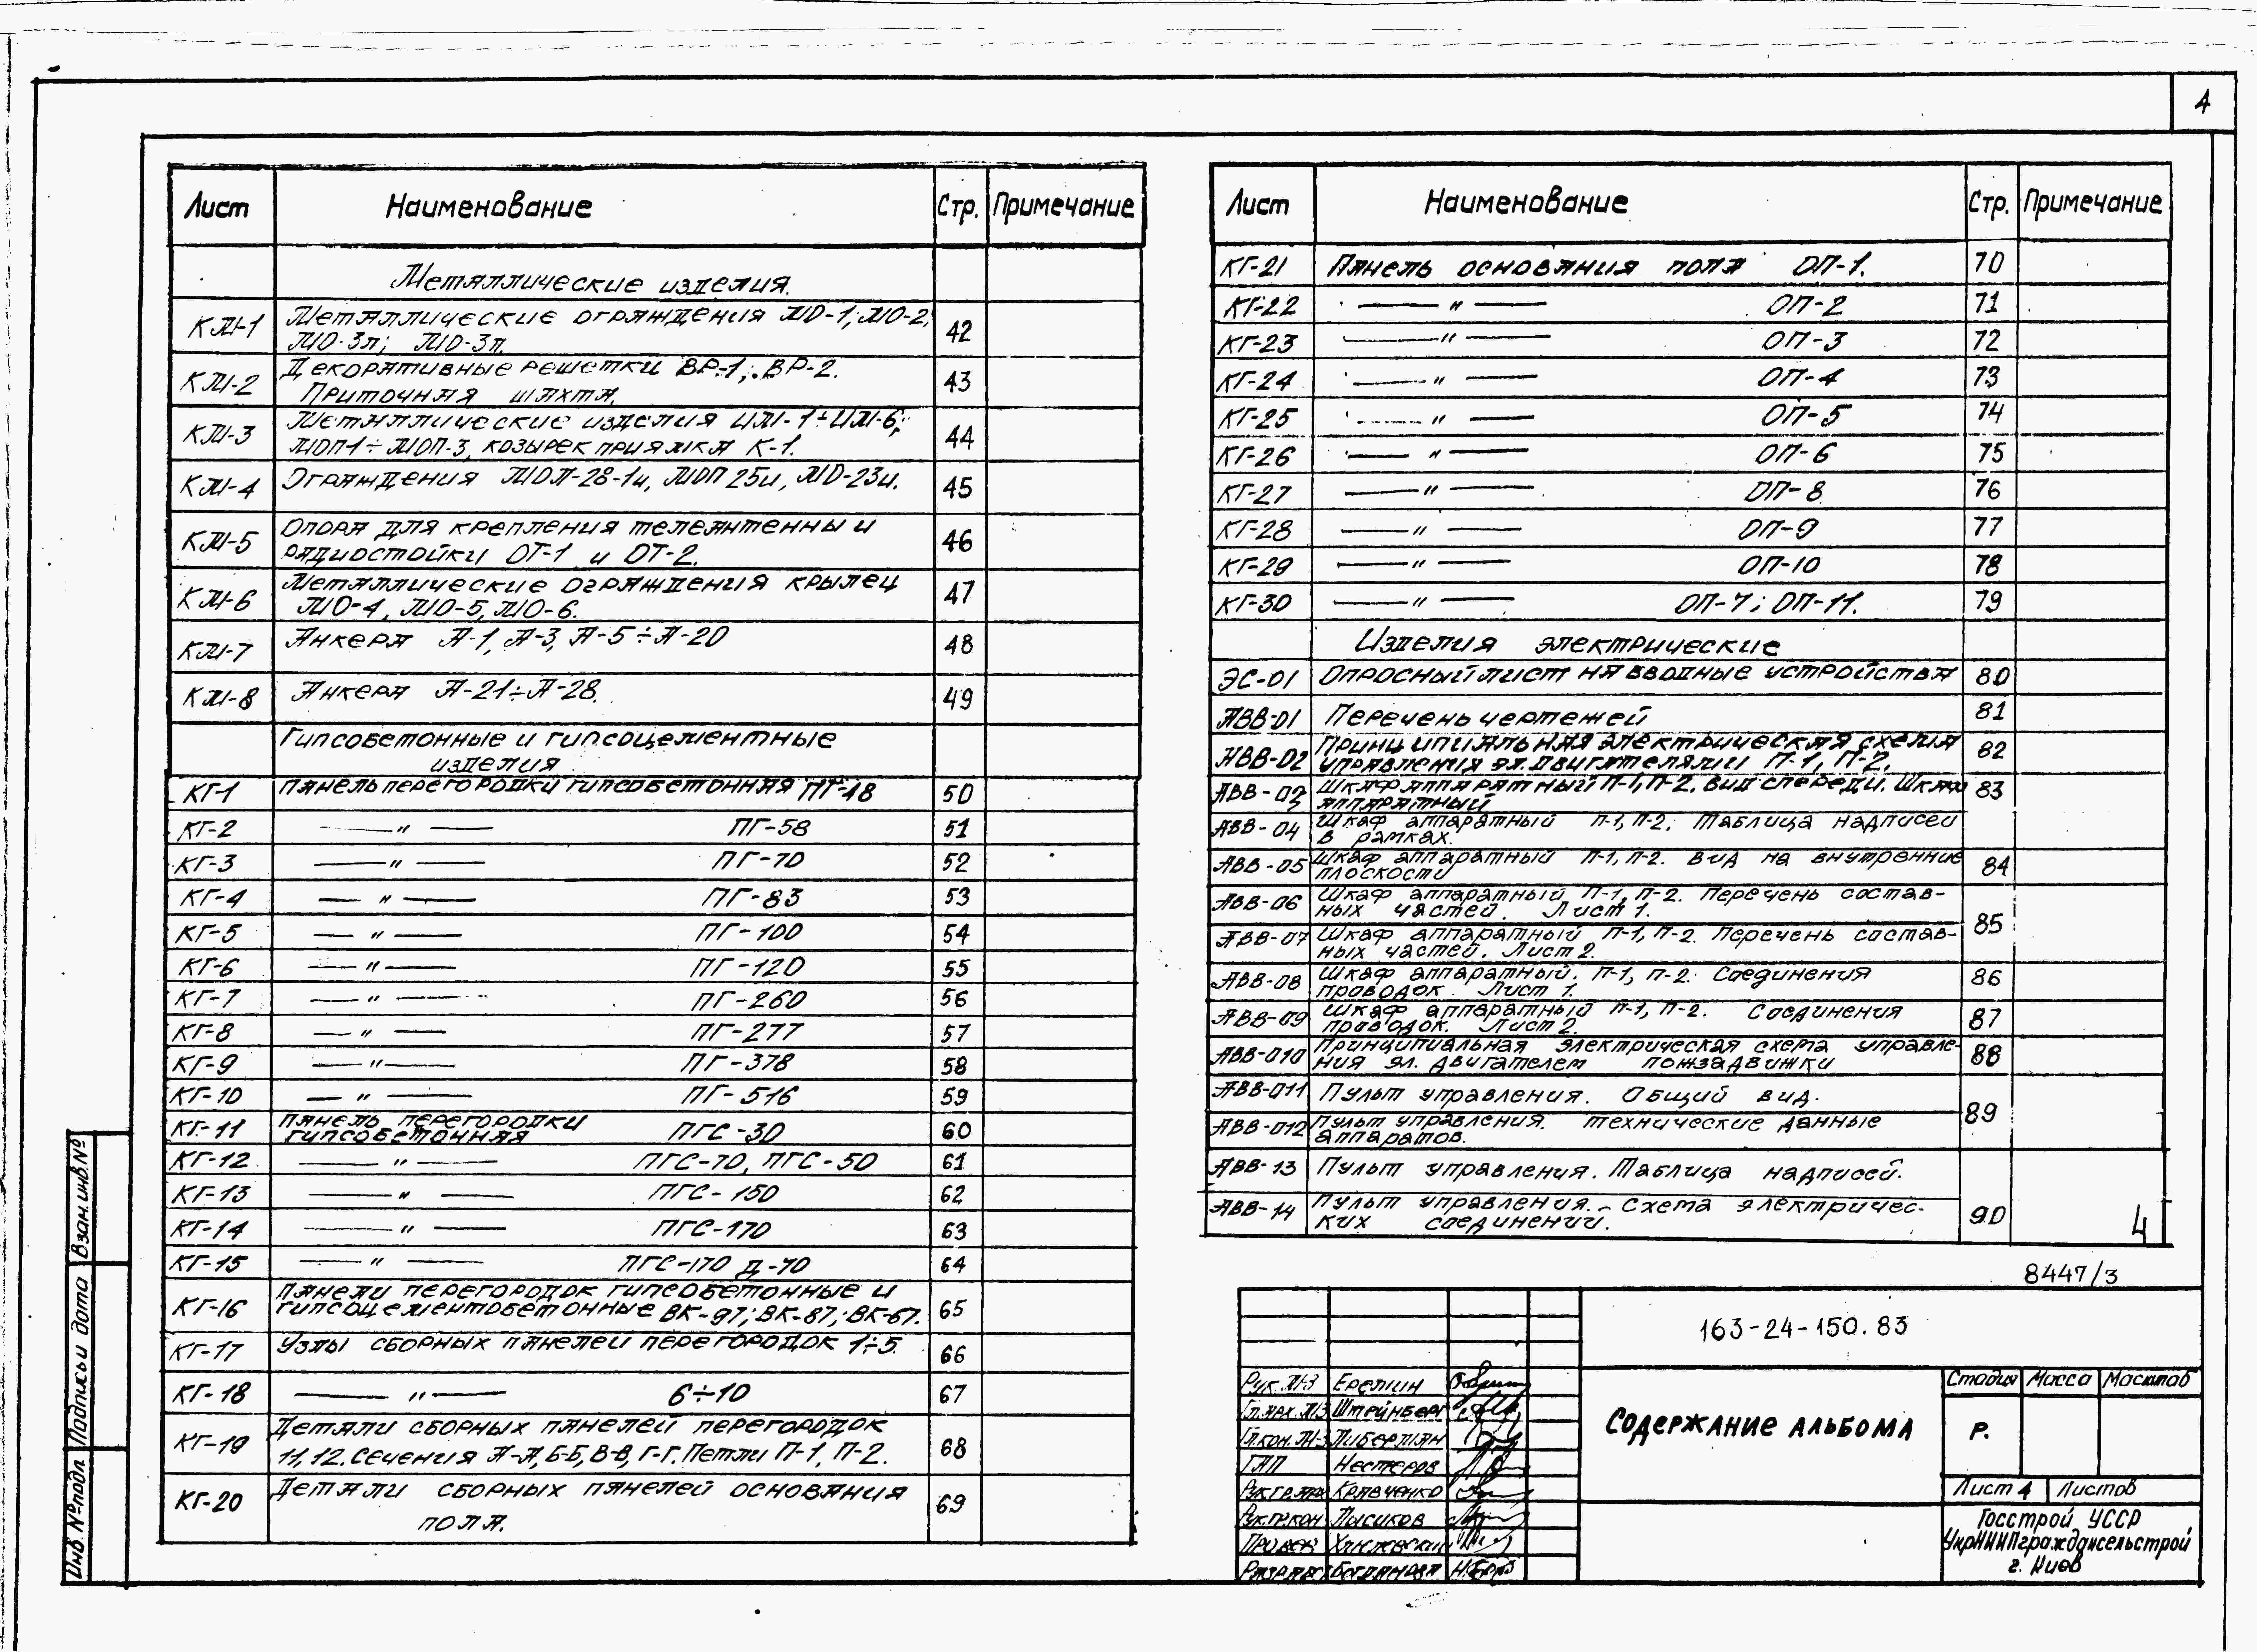 4
Лист Наименование Стр. Примечание
Металлические изделия.
КМ-1 Металлические ограждения МО-1; МО-2; 42
МО-3л; МО-3п.
КМ-2 Декоративные решетки ВР-1; ВР-2. 43
Приточная шахта.
КМ-3 Металлические изделия ИМ-1÷ИМ-6; 44
МОП-1÷МОП-3, козырек приямка К-1.
КМ-4 Ограждения МОЛ-28-1и, МОП 25и, МО-23и. 45
КМ-5 Опора для крепления телеантенны и 46
радиостойки ОТ-1 и ОТ-2.
КМ-6 Металлические ограждения крылец 47
МО-4, МО-5, МО-6.
КМ-7 Анкера А-1, А-3, А-5÷А-20 48
КМ-8 Анкера А-21÷А-28. 49
Гипсобетонные и гипсоцементные
изделия
КГ-1 Панель перегородки гипсобетонная ПГ-48 50
КГ-2 —〃— ПГ-58 51
КГ-3 —〃— ПГ-70 52
КГ-4 —〃— ПГ-83 53
КГ-5 —〃— ПГ-100 54
КГ-6 —〃— ПГ-120 55
КГ-7 —〃— ПГ-260 56
КГ-8 —〃— ПГ-277 57
КГ-9 —〃— ПГ-378 58
КГ-10 —〃— ПГ-516 59
КГ-11 Панель перегородки
гипсобетонная ПГС-30 60
КГ-12 —〃— ПГС-70, ПГС-50 61
КГ-13 —〃— ПГС-150 62
КГ-14 —〃— ПГС-170 63
КГ-15 —〃— ПГС-170 Д-70 64
КГ-16 Панели перегородок гипсобетонные и 65
гипсоцементобетонные ВК-97; ВК-87; ВК-67.
КГ-17 Узлы сборных панелей перегородок 1÷5. 66
КГ-18 —〃— 6÷10 67
КГ-19 Детали сборных панелей перегородок 68
11, 12. Сечения А-А, Б-Б, В-В, Г-Г. Петли П-1, П-2.
КГ-20 Детали сборных панелей основания 69
пола.
Лист Наименование Стр. Примечание
КГ-21 Панель основания пола ОП-1. 70
КГ-22 —〃— ОП-2 71
КГ-23 —〃— ОП-3 72
КГ-24 —〃— ОП-4 73
КГ-25 —〃— ОП-5 74
КГ-26 —〃— ОП-6 75
КГ-27 —〃— ОП-8 76
КГ-28 —〃— ОП-9 77
КГ-29 —〃— ОП-10 78
КГ-30 —〃— ОП-7; ОП-11. 79
Изделия электрические
ЭС-01 Опросный лист на вводные устройства 80
АВВ-01 Перечень чертежей 81
АВВ-02 Принципиальная электрическая схема 82
управления эл.двигателями П-1, П-2.
АВВ-03 Шкаф аппаратный П-1, П-2. Вид спереди. Шкаф 83
аппаратный
АВВ-04 Шкаф аппаратный П-1, П-2. Таблица надписей
в рамках.
АВВ-05 Шкаф аппаратный П-1, П-2. Вид на внутренние 84
плоскости
АВВ-06 Шкаф аппаратный П-1, П-2. Перечень состав-
ных частей. Лист 1. 85
АВВ-07 Шкаф аппаратный П-1, П-2. Перечень состав-
ных частей. Лист 2.
АВВ-08 Шкаф аппаратный. П-1, П-2. Соединения 86
проводок. Лист 1.
АВВ-09 Шкаф аппаратный П-1, П-2. Соединения 87
проводок. Лист 2.
АВВ-010 Принципиальная электрическая схема управле- 88
ния эл. двигателем пожзадвижки
АВВ-011 Пульт управления. Общий вид. 89
АВВ-012 Пульт управления. Технические данные
аппаратов.
АВВ-13 Пульт управления. Таблица надписей.
АВВ-14 Пульт управления. Схема электричес- 90
ких соединений.
4
8447/3
163-24-150.83
Содержание альбома
Стадия Масса Масштаб
Р.
Лист 4 Листов
Госстрой УССР
УкрНИИПграждансельстрой
г. Киев
Рук. М-3 Еремин
Гл.арх. М-3 Штейнберг
Гл.кон. М-3 Либерман
ГАП Нестеров
Рук.гр.арх Кравченко
Рук.гр.кон Лысиков
Провер
Разраб Богданова
Взам. инв. №
Подпись и дата
Инв. № подл.